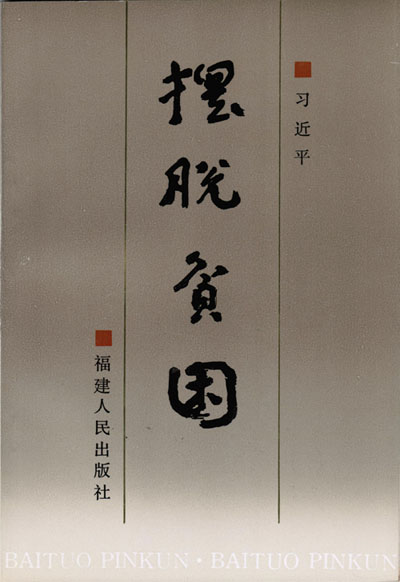 习近平
摆脱贫困
福建人民出版社
BAITUO PINKUN · BAITUO PINKUN